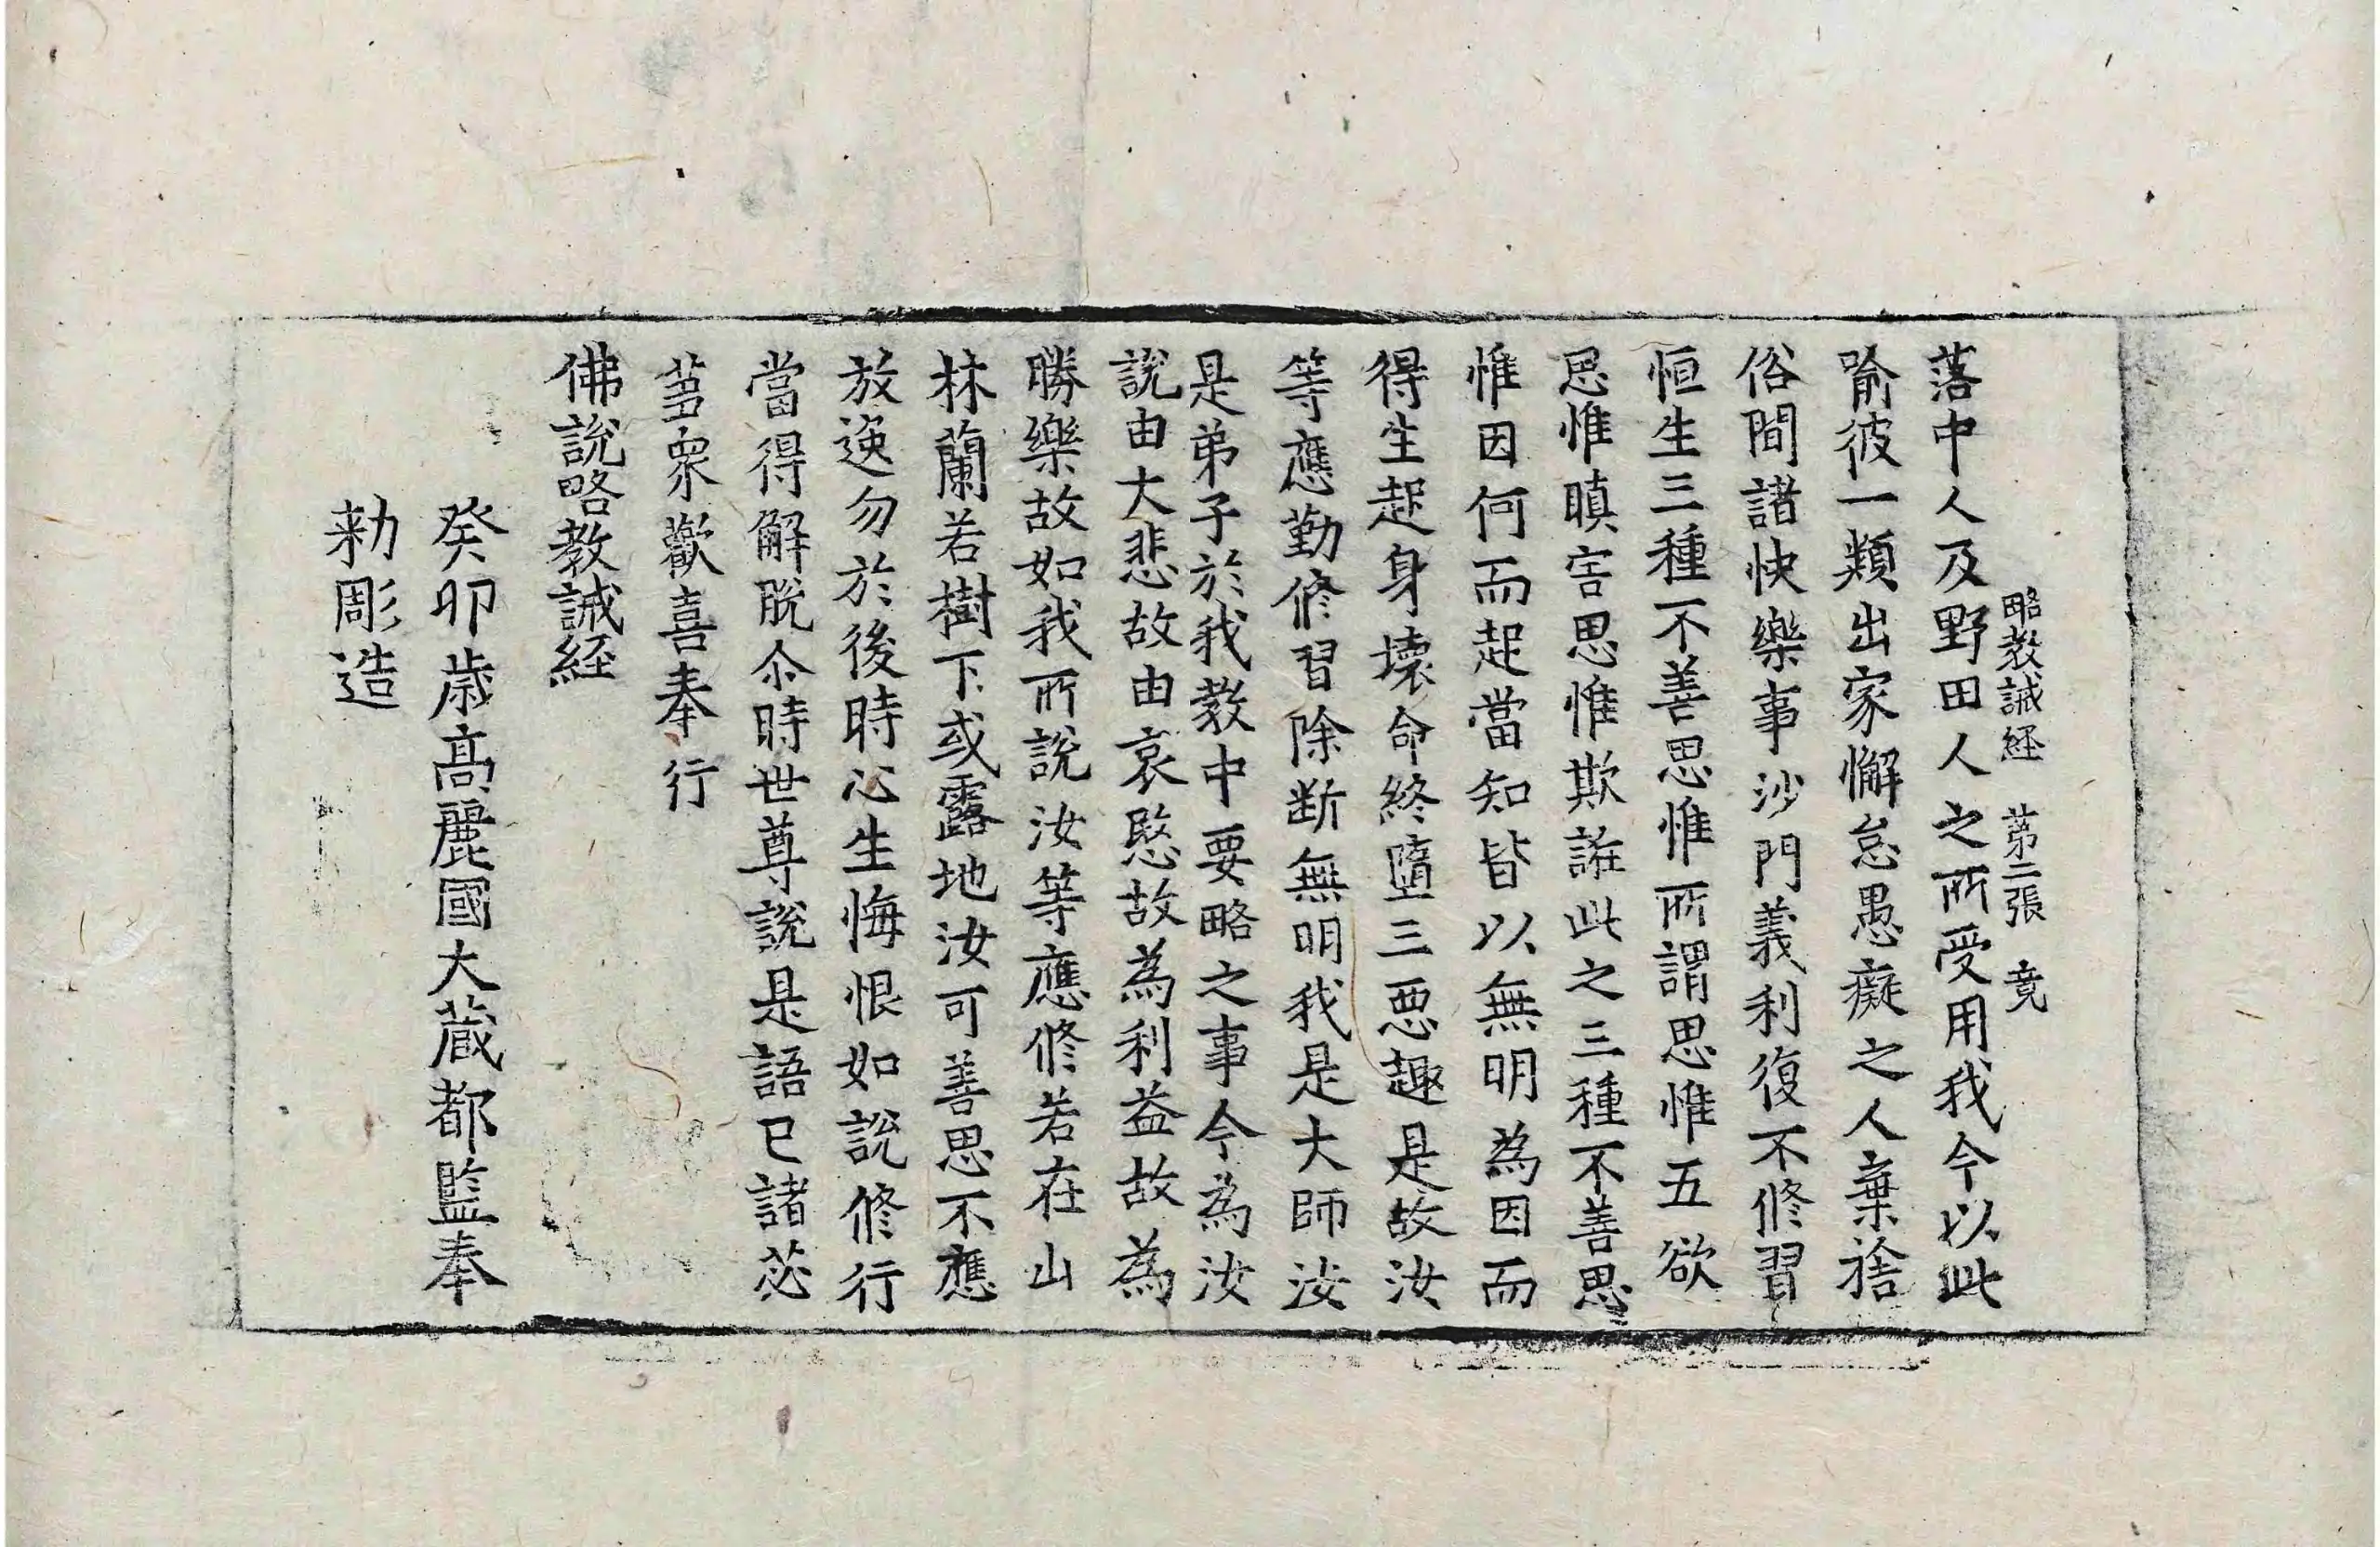 略教誡経 第二張 竟
落中人及野田人之所受用我今以此
喻彼一類出家懈怠愚癡之人棄捨
俗間諸快樂事沙門義利復不修習
恒生三種不善思惟所謂思惟五欲
思惟瞋害思惟欺誑此之三種不善思
惟因何而起當知皆以無明為因而
得生起身壞命終墮三惡趣是故汝
等應勤修習除断無明我是大師汝
是弟子於我教中要略之事今為汝
說由大悲故由哀愍故為利益故為
勝樂故如我所說汝等應修若在山
林蘭若樹下或露地汝可善思不應
放逸勿於後時心生悔恨如說修行
當得解脫尒時世尊說是語已諸苾
蒭衆歡喜奉行
佛說略教誡経
癸卯歳高麗國大蔵都監奉
勑彫造